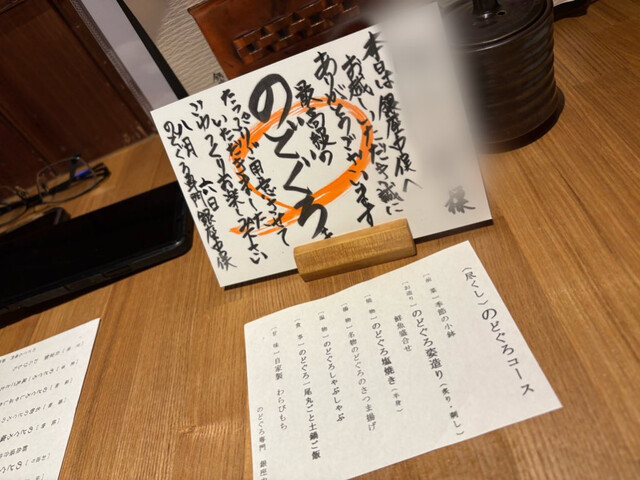 様
本日は銀座中俣へ
お越しいただき誠に
ありがとうございます
最高級の
のどぐろを
たっぷりご用意させて
いただきました
ごゆっくりお楽しみ下さい
八月六日 銀座中俣
のどぐろ専門
(尽くし)のどぐろコース
[先菜]季節の小鉢
[お造り]のどぐろ姿造り(炙り・刺し)
鮮魚盛合せ
[焼物]のどぐろ塩焼き(半身)
[揚物]名物のどぐろのさつま揚げ
[温物]のどぐろしゃぶしゃぶ
[食事]のどぐろ一尾丸ごと土鍋ご飯
[甘味]自家製 わらびもち
のどぐろ専門 銀座